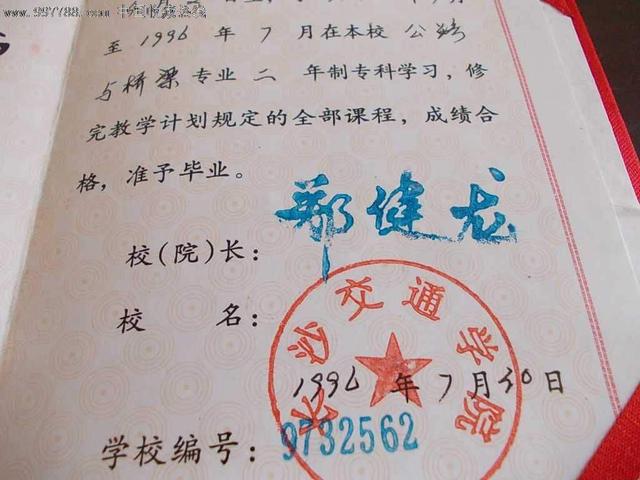 www.997788.com 中国收藏热线
至1996年7月在本校公路
与桥梁专业二年制专科学习，修
完教学计划规定的全部课程，成绩合
格，准予毕业。
郑健龙
校(院)长：
长沙交通学院
校名：
1996年7月30日
学校编号：9732562